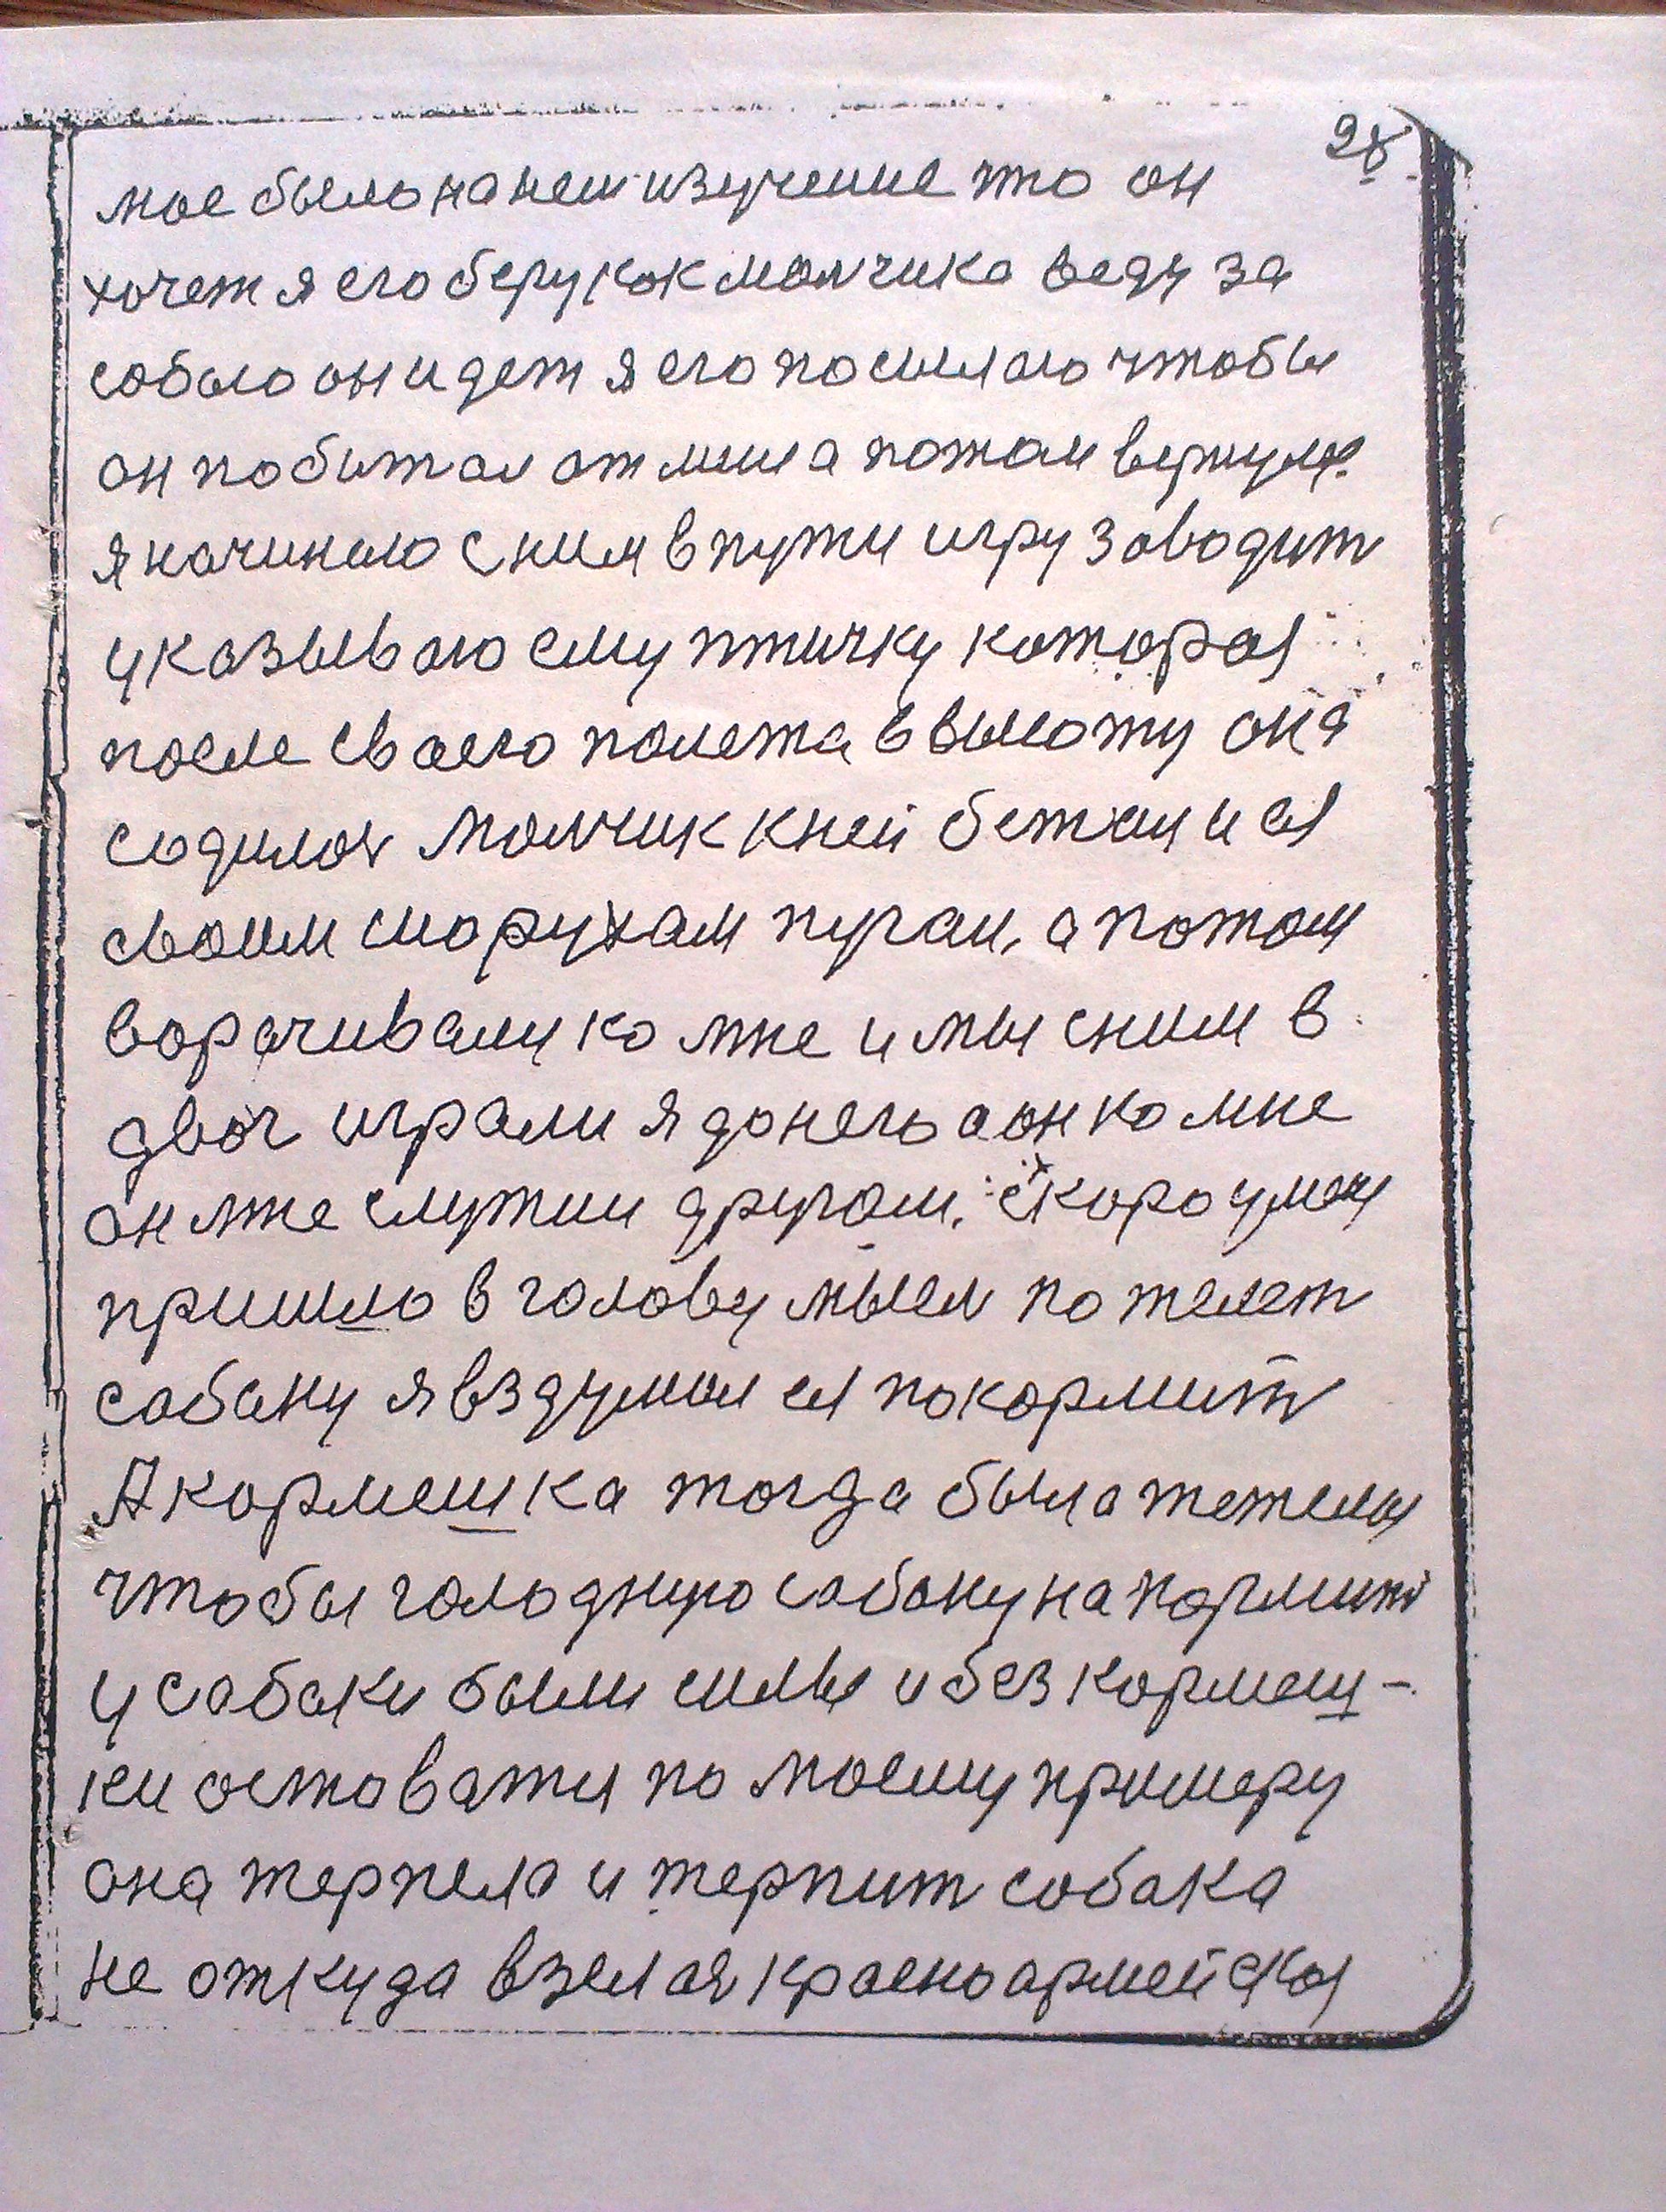 28
мое было на нем изучение что он
хочет я его беру как малчика веду за
собою он идет я его посылаю чтобы
он побижал от мине а потом вернулся
я начинаю с ним в пути игру заводит
указываю ему птичку которая
после своего полета в высоту она
садилась малчик к ней бежал и ея
своим шорухам пугал, а потом
ворачивалу ко мне и мы с ним в
двох играли я до него а он ко мне
он мне служил другом. скоро у мея
пришло в голову мысл пожелет
сабаку я вздумал ея покормит
А кормешка тогда была тежелая
чтобы голодную сабаку накормит
у сабаки были силы и без кормеш-
ки оставатя по моему примеру
она терпела и терпит собака
не откуда взелая красноармейская